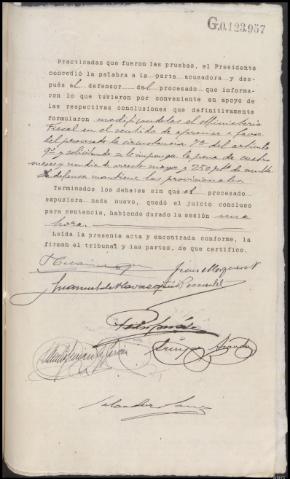 G.0.123.957
Practicadas que fueron las pruebas, el Presidente
concedió la palabra a la parte acusadora y des-
pués al defensor del procesado que informa-
ron lo que tuvieron por conveniente en apoyo de
las respectivas conclusiones que definitivamente
formularon modificandolas el Ministerio
Fiscal en el sentido de apreciar a favor
del procesado la circunstancia 7ª del articulo
9º y pidiendo se le imponga la pena de cuatro
meses y un dia de arresto mayor y 250 pts de multa
La defensa mantiene las provisionales
Terminados los debates sin que el procesado
expusiera nada nuevo, quedó el juicio concluso
para sentencia, habiendo durado la sesión una
hora.
Leida la presente acta y encontrada conforme, la
firman el tribunal y las partes, de que certifico.